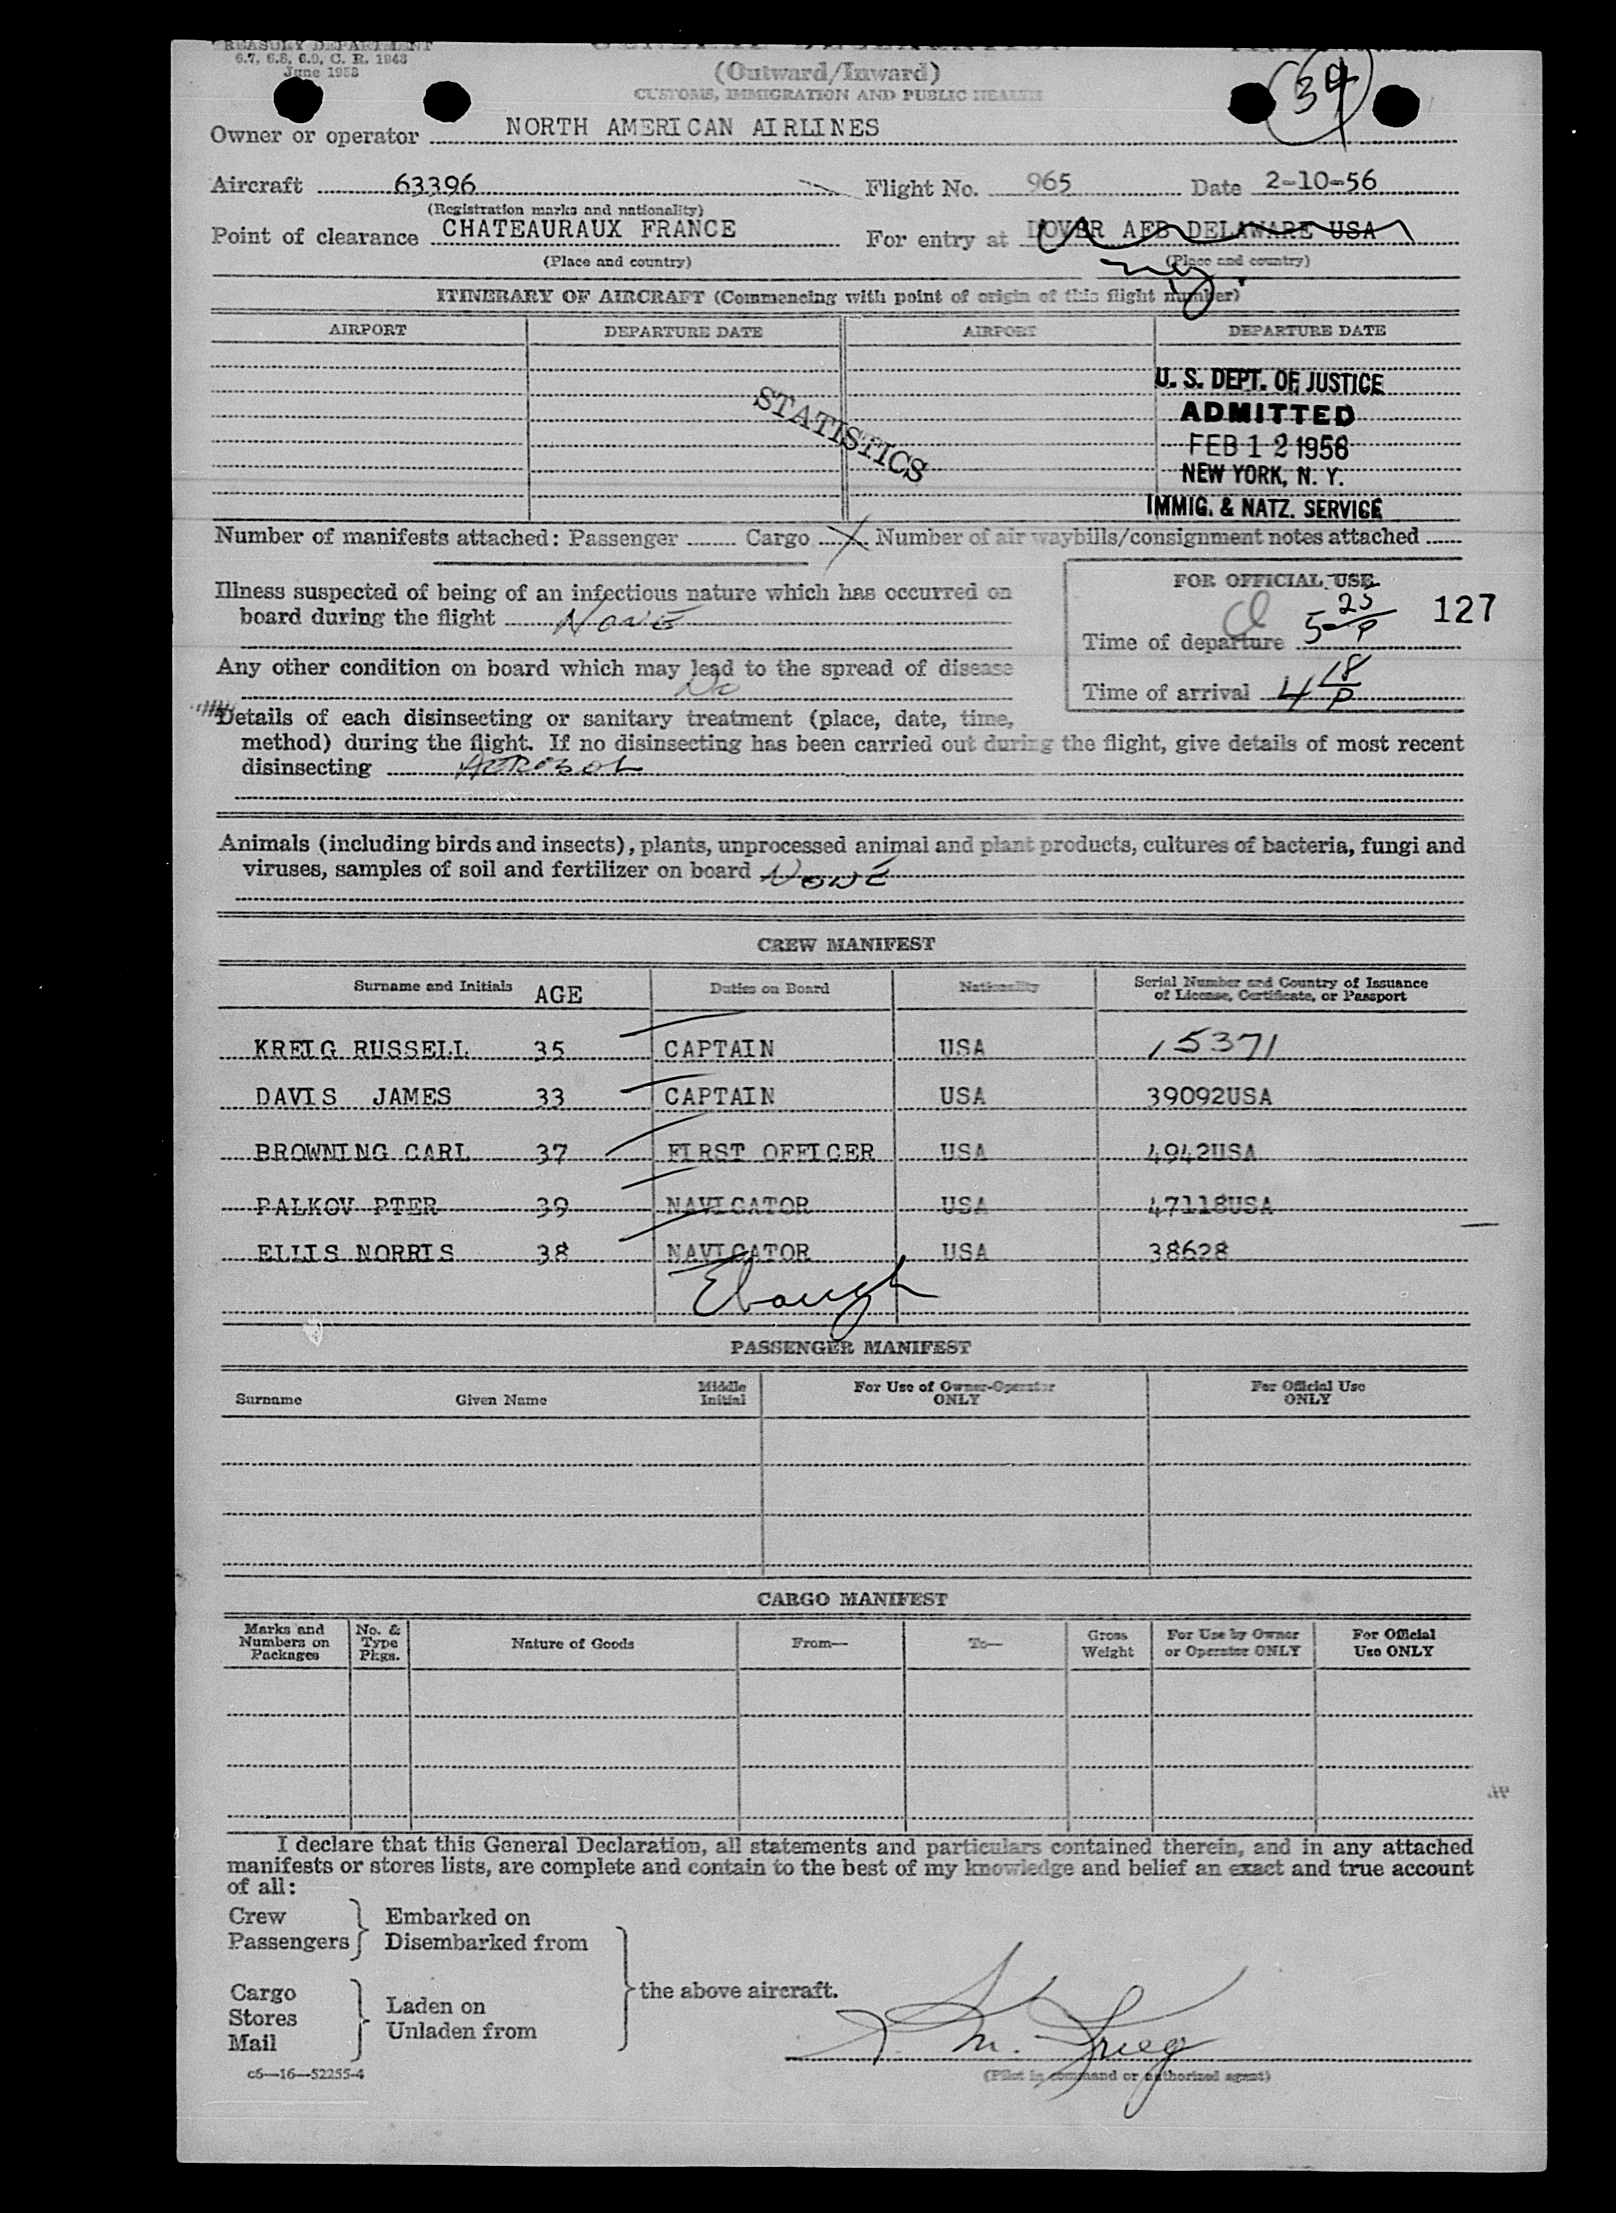 TREASURY DEPARTMENT
6.7, 6.8, 6.9, C. R. 1943
June 1953
GENERAL DECLARATION
(Outward/Inward)
CUSTOMS, IMMIGRATION AND PUBLIC HEALTH
34
Owner or operator NORTH AMERICAN AIRLINES
Aircraft 63396 Flight No. 965 Date 2-10-56
(Registration marks and nationality)
Point of clearance CHATEAURAUX FRANCE For entry at DOVER AFB DELAWARE USA
(Place and country) (Place and country)
NY
ITINERARY OF AIRCRAFT (Commencing with point of origin of this flight number)
AIRPORT DEPARTURE DATE AIRPORT DEPARTURE DATE
STATISTICS
U. S. DEPT. OF JUSTICE
ADMITTED
FEB 12 1956
NEW YORK, N. Y.
IMMIG. & NATZ. SERVICE
Number of manifests attached: Passenger Cargo X Number of air waybills/consignment notes attached
FOR OFFICIAL USE
Illness suspected of being of an infectious nature which has occurred on
board during the flight NONE
Time of departure 5 25/P 127
Any other condition on board which may lead to the spread of disease
No
Time of arrival 4 18/P
Details of each disinsecting or sanitary treatment (place, date, time,
method) during the flight. If no disinsecting has been carried out during the flight, give details of most recent
disinsecting AEROSOL
Animals (including birds and insects), plants, unprocessed animal and plant products, cultures of bacteria, fungi and
viruses, samples of soil and fertilizer on board NONE
CREW MANIFEST
Surname and Initials AGE Duties on Board Nationality Serial Number and Country of Issuance
of License, Certificate, or Passport
KREIG RUSSELL 35 CAPTAIN USA 15371
DAVIS JAMES 33 CAPTAIN USA 39092USA
BROWNING CARL 37 FIRST OFFICER USA 4942USA
PALKOV PTER 39 NAVIGATOR USA 47118USA
ELLIS NORRIS 38 NAVIGATOR USA 38628
Ebaugh
PASSENGER MANIFEST
Surname Given Name Middle
Initial For Use of Owner-Operator
ONLY For Official Use
ONLY
CARGO MANIFEST
Marks and
Numbers on
Packages No. &
Type
Pkgs. Nature of Goods From— To— Gross
Weight For Use by Owner
or Operator ONLY For Official
Use ONLY
I declare that this General Declaration, all statements and particulars contained therein, and in any attached
manifests or stores lists, are complete and contain to the best of my knowledge and belief an exact and true account
of all:
Crew Embarked on
Passengers Disembarked from
the above aircraft.
Cargo
Stores Laden on
Mail Unladen from
(Pilot in command or authorized agent)
c6—16—52255-4